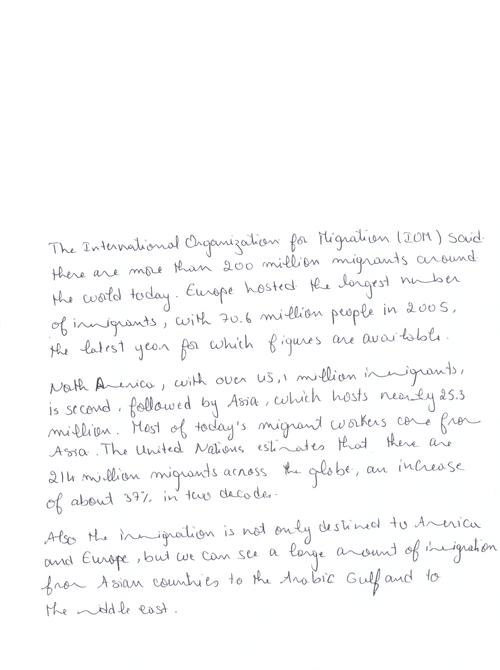 The International Organization for Migration (IOM) said
there are more than 200 million migrants around
the world today. Europe hosted the largest number
of immigrants, with 70.6 million people in 2005,
the latest year for which figures are available.
North America, with over 45,1 million immigrants,
is second, followed by Asia, which hosts nearly 25.3
million. Most of today's migrant workers come from
Asia. The United Nations estimates that there are
214 million migrants across the globe, an increase
of about 37% in two decades.
Also the immigration is not only destined to America
and Europe, but we can see a large amount of immigration
from Asian countries to the Arabic Gulf and to
the middle east.